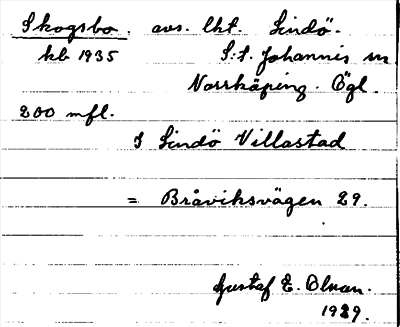 Skogsbo. avs. lht. Lindö.
kb 1935 S:t Johannis
Norrköping. Ögl.
200 mfl.
I Lindö Villastad
= Bråviksvägen 29.
Gustaf E. Olman.
1939.